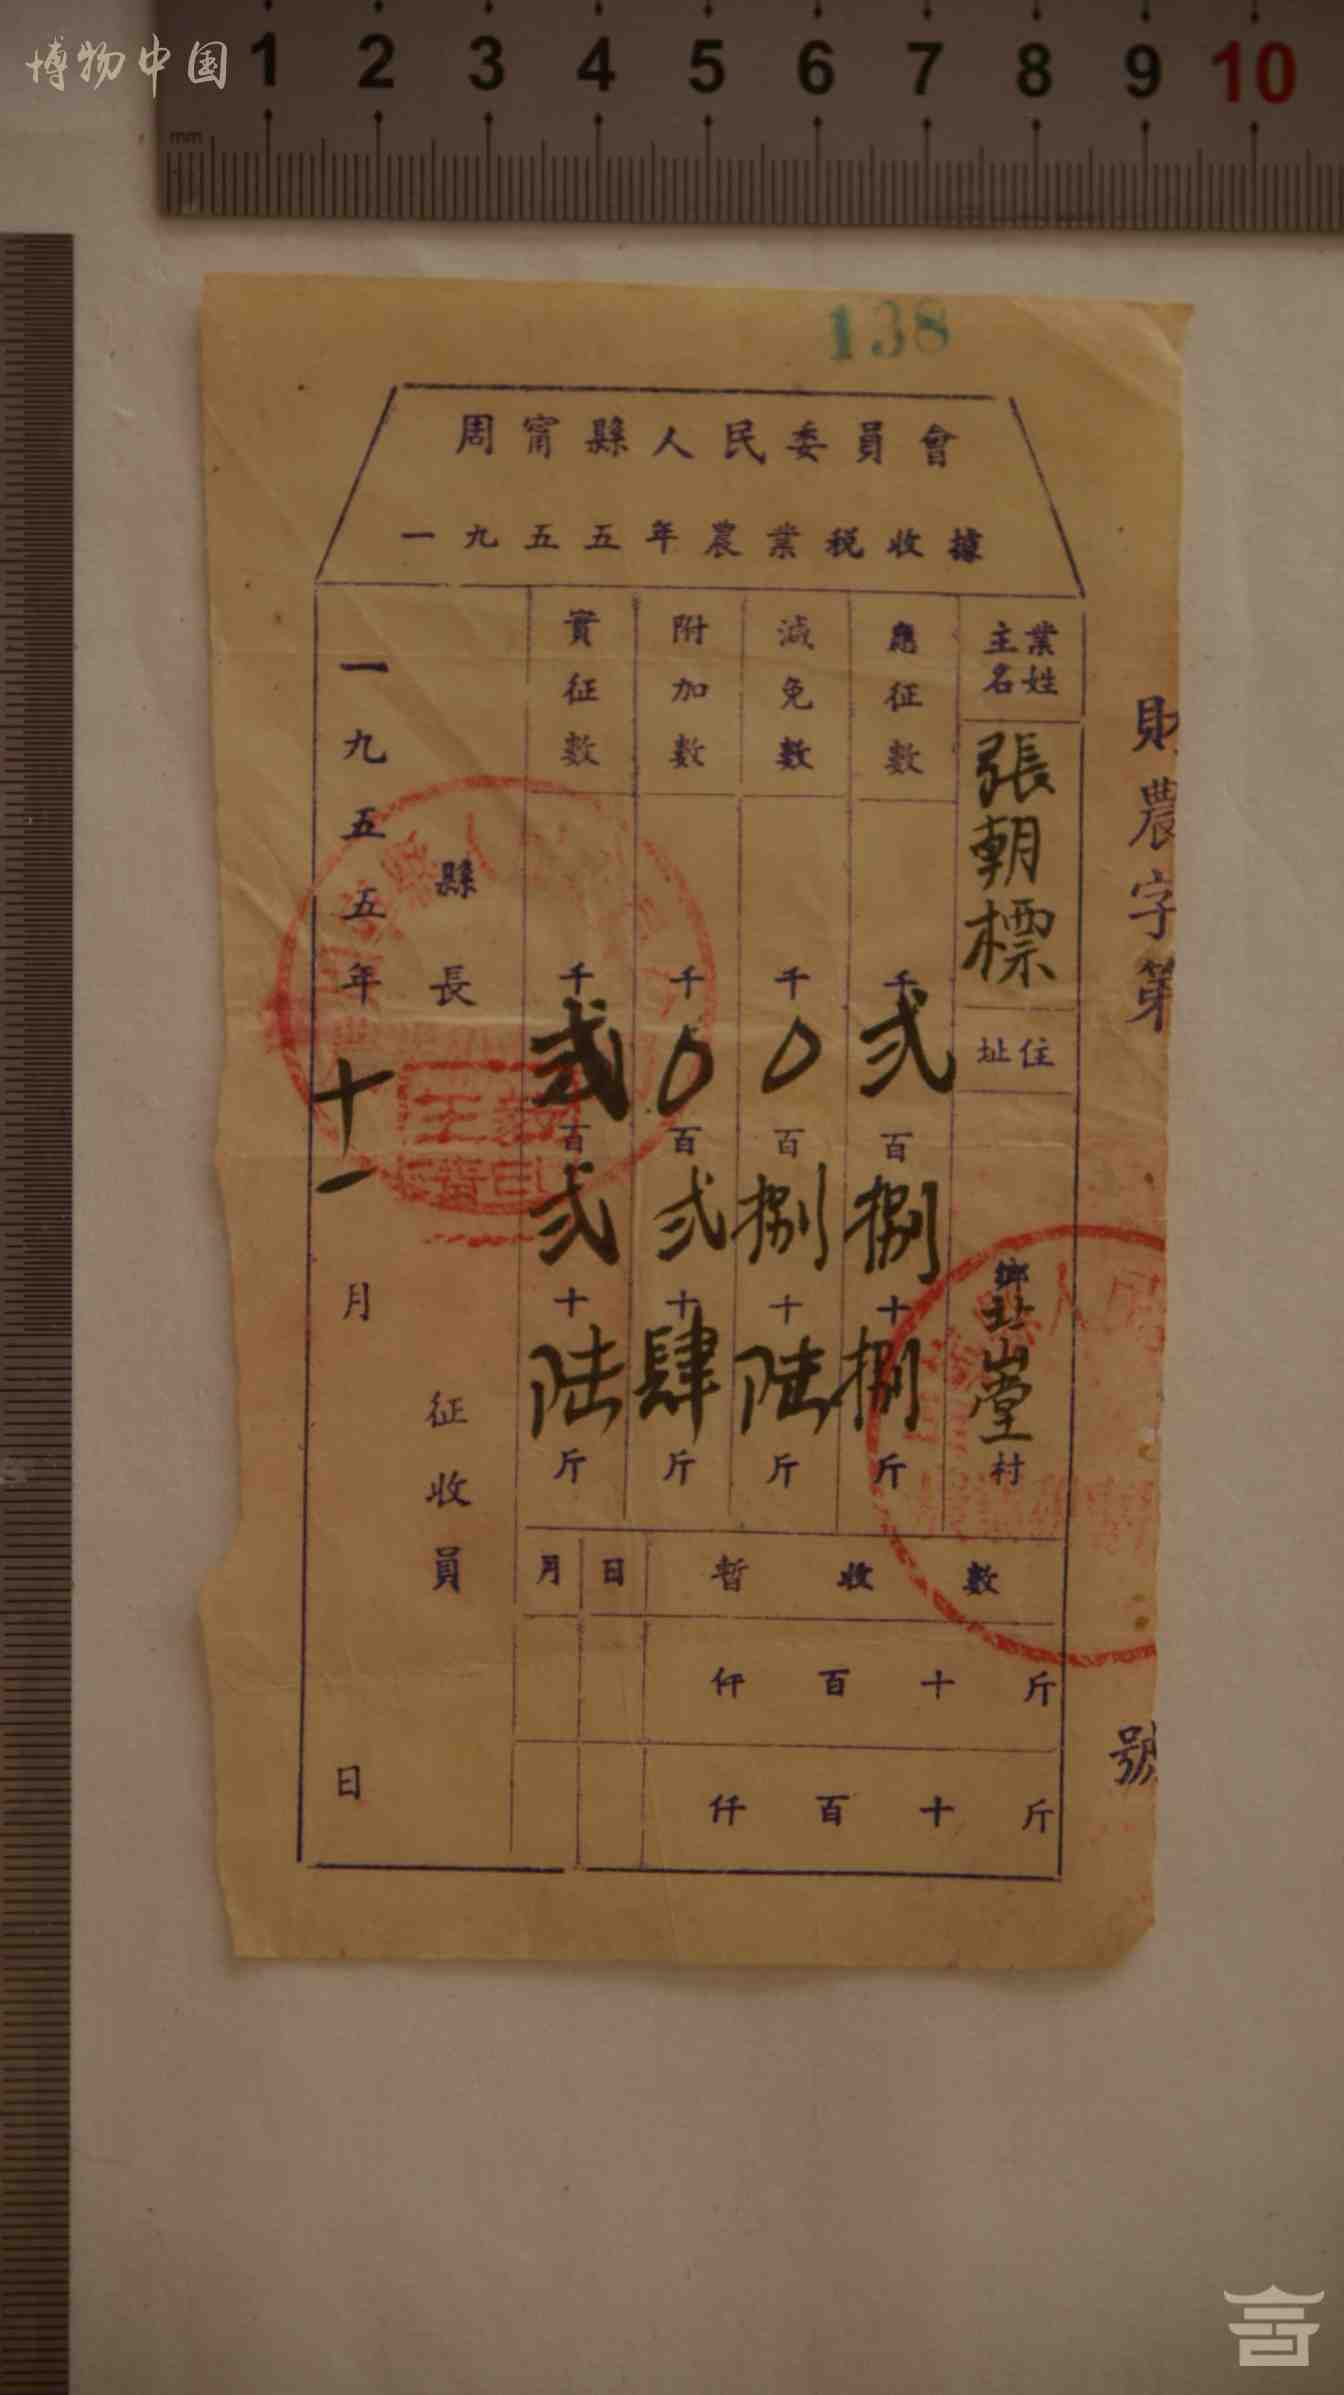 博物中国
1 2 3 4 5 6 7 8 9 10
mm
138
周甯縣人民委員會
一九五五年農業稅收據
財農字第 號
業主姓名 張朝標 住址 鄉 村
應征數 千弍百捌十捌斤
減免數 千0百捌十陆斤
附加數 千0百弍十肆斤
實征數 千弍百弍十陆斤
暫收數 日 月
仟百十斤
仟百十斤
縣長
征收員
一九五五年十一月 日